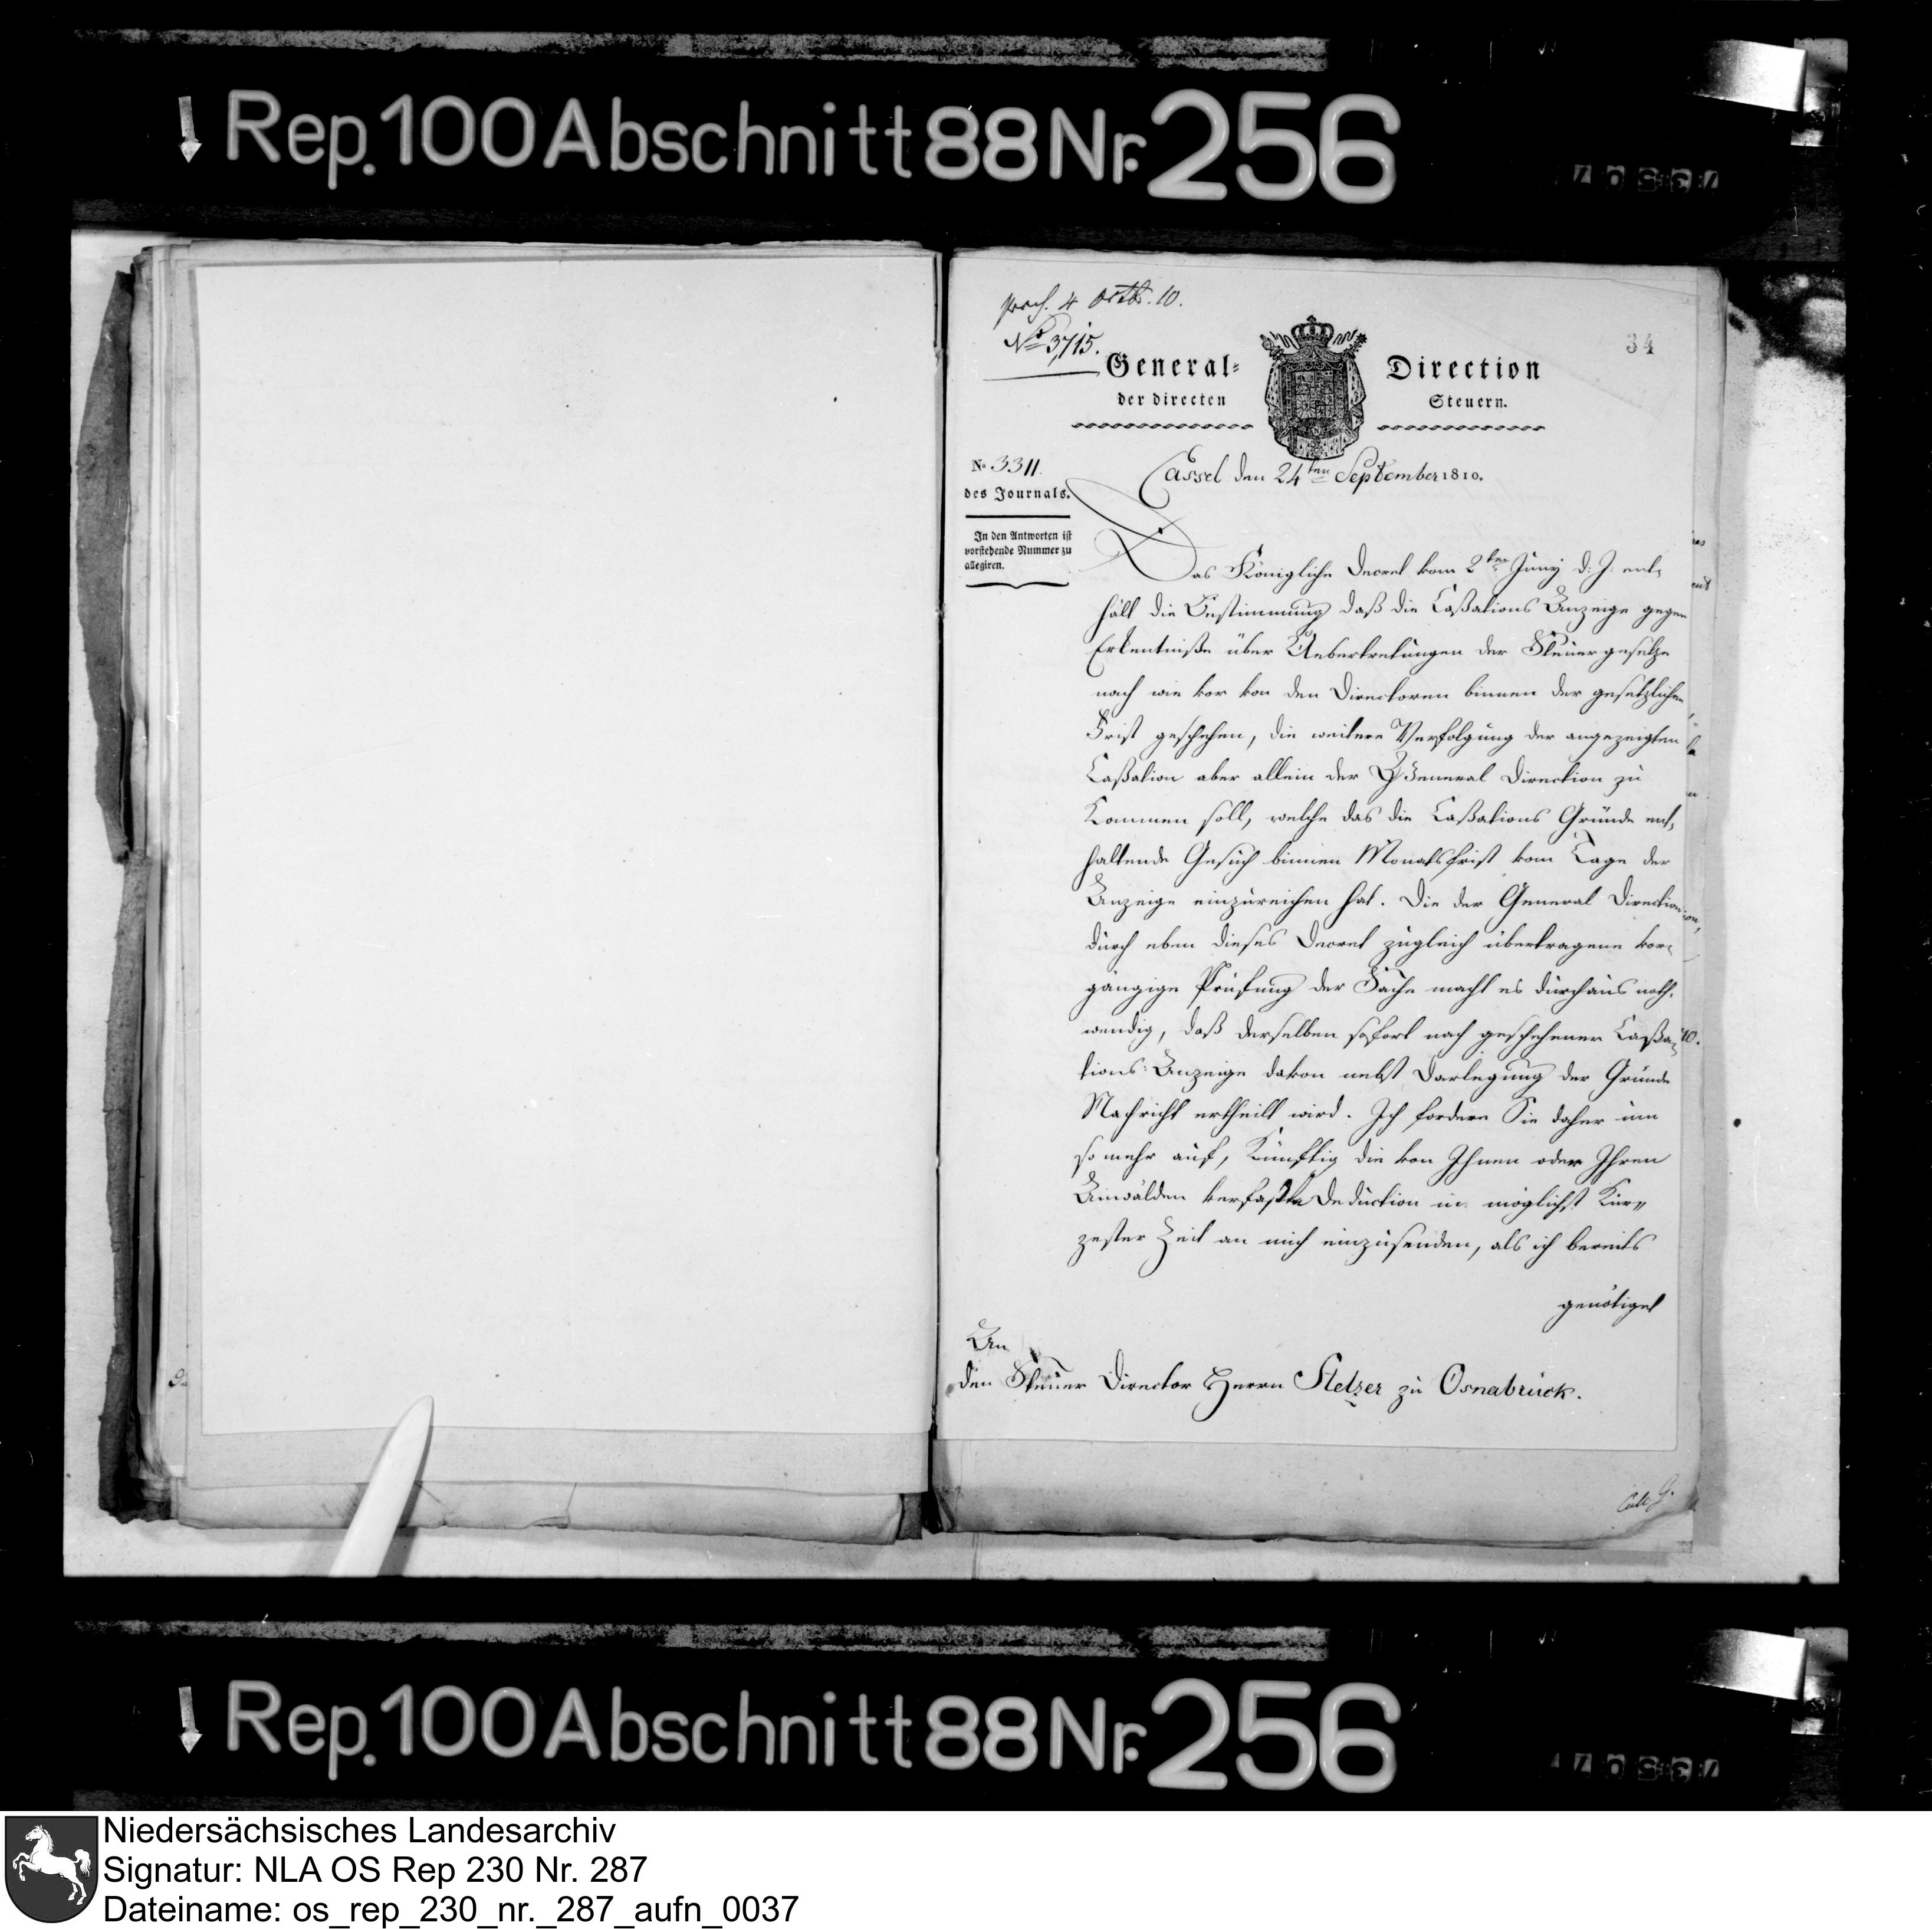 Rep. 100 Abschnitt 88 Nr. 256
praes. 4 Octb. 10.
No 3,715.
34
General- Direction
der directen Steuern.
No 3311.
des Journals.
In den Antworten ist
vorstehende Nummer zu
allegiren.
Cassel den 24ten September 1810.
Das Königliche Decret vom 2ten Juny d: J: ent-
hält die Bestimmung daß die Caßations Anzeige gegen
Erkentniße über Uebertretungen der Steuergesetze
nach wie vor von den Directoren binnen der gesetzlichen
Frist geschehen, die weitere Verfolgung der angezeigten
Caßation aber allein der General Direction zu
Kommen soll, welche das die Caßations Gründe ent-
haltende Gesuch binnen Monatsfrist vom Tage der
Anzeige einzureichen hat. Die der General Direction
durch eben dieses Decret zugleich übertragene vor-
gängige Prüfung der Sache macht es durchaus noth-
wendig, daß derselben sofort nach geschehener Caßa-
tions-Anzeige davon nebst Darlegung der Gründe
Nachricht ertheilt wird. Ich fordere Sie daher um
so mehr auf, Künftig die von Ihnen oder Ihren
Anwälden verfaßte Deduction in möglichst Kür-
zester Zeit an mich einzusenden, als ich bereits
genötiget
An
den Steuer Director Herrn Stelzer zu Osnabrück.
Rep. 100 Abschnitt 88 Nr. 256
Niedersächsisches Landesarchiv
Signatur: NLA OS Rep 230 Nr. 287
Dateiname: os_rep_230_nr._287_aufn_0037